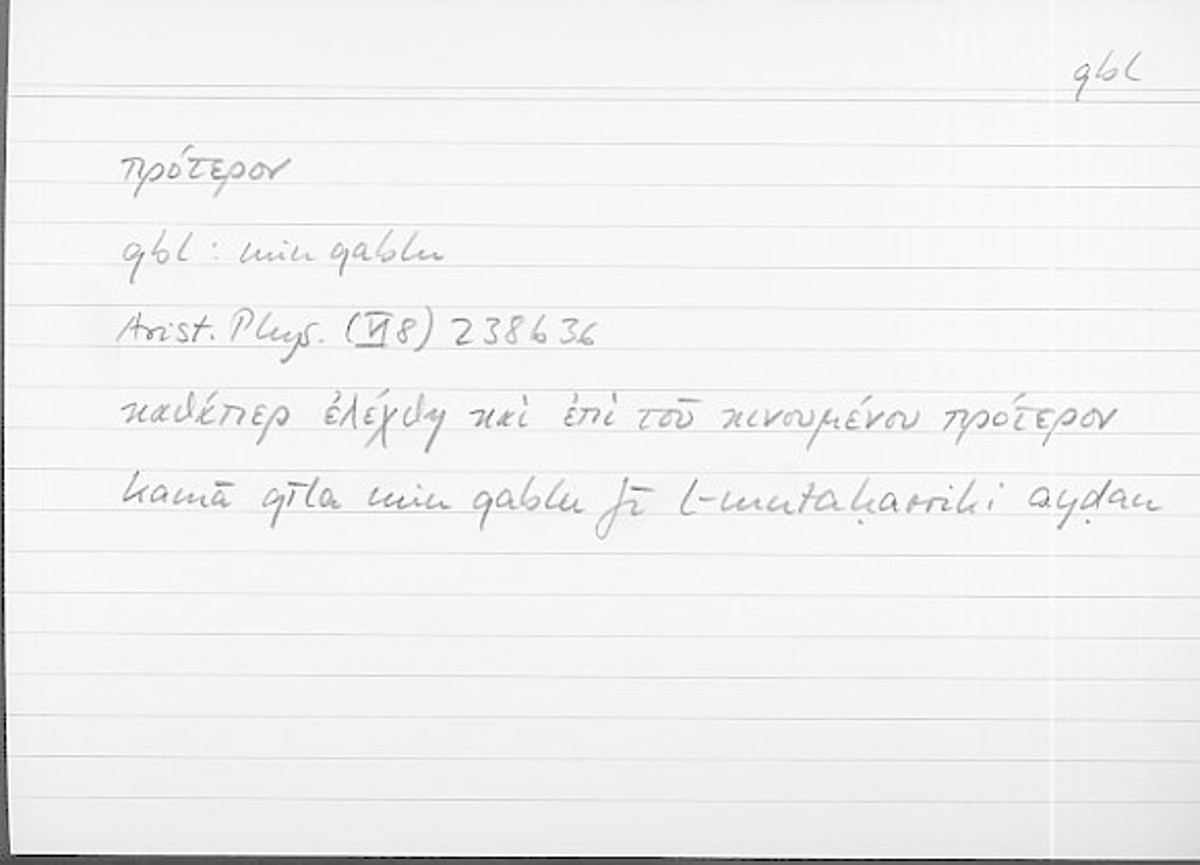 qbl
πρότερον
qbl : min qablu
Arist. Phys. (VI 8) 238b36
καθάπερ ἐλέχθη καὶ ἐπὶ τοῦ κινουμένου πρότερον
kamā qīla min qablu fī l-mutaḥarriki ayḍan